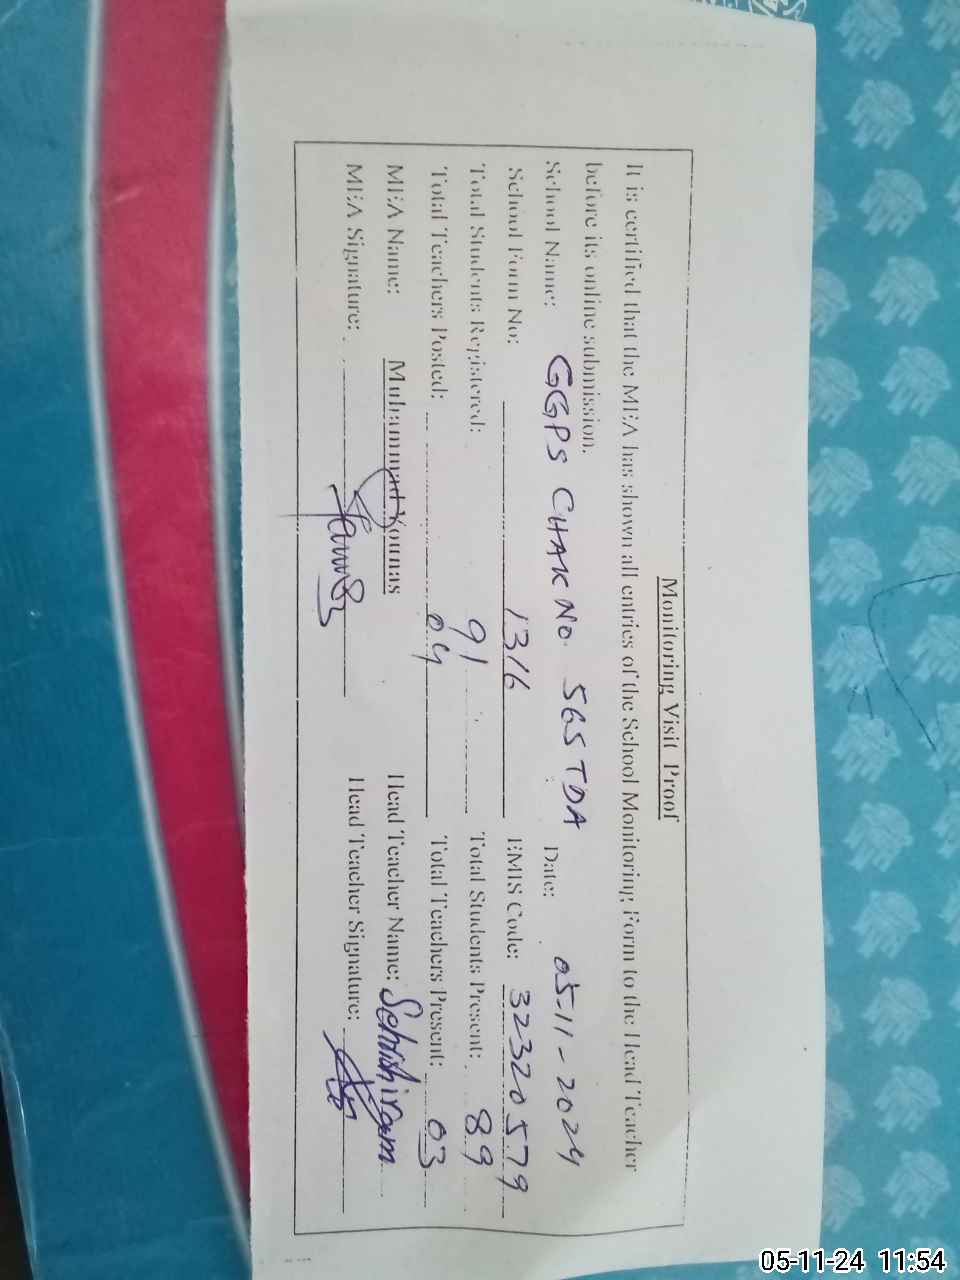 Monitoring Visit Proof
It is certified that the MEA has shown all entries of the School Monitoring Form to the Head Teacher
before its online submission.
School Name: GGPS CHAK NO. 565 TDA Date: 05-11-2024
School Form No: 1316 EMIS Code: 32320579
Total Students Registered: 91 Total Students Present: 89
Total Teachers Posted: 04 Total Teachers Present: 03
MEA Name: Muhammad Younas Head Teacher Name:
MEA Signature: Head Teacher Signature:
05-11-24 11:54